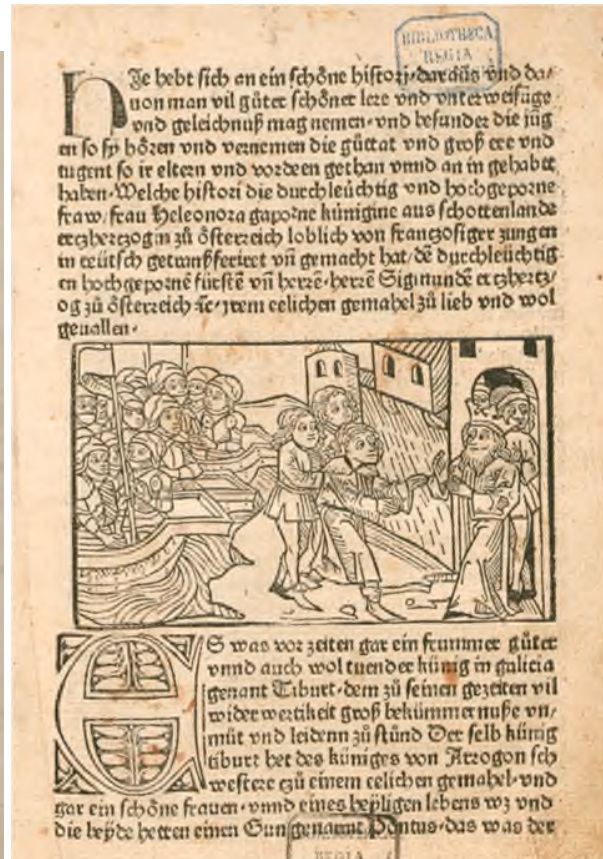 BIBLIOTHECA
REGIA
HJe hebt sich an ein schöne histori·daraus vnd da/
uon man vil güter schöner lere vnd vnterweisūge
vnd geleichnuß mag nemen·vnd besunder die jūg
en so sy hören vnd vernemen die güttat vnd groß ere vnd
tugent so ir eltern vnd vordeen gethan vnnd an in gehabet
haben·Welche histori die durchleüchtig vnd hochgeporne
fraw. frau Heleonora gaporne künigine aus schottenlande
erczherczogin zů österreich loblich von franczosiger zungen
in teütsch getranßferiret vn̄ gemacht hat/dē durchleüchtig
en hochgepornē fürstē vn̄ herrē·herrē Sigmundē erczhercz/
og zů österreich ⁊c·jrem eelichen gemahel zů lieb vnd wol
geuallen·
ES was vor zeiten gar ein frummer güter
vnnd auch wol tuender künig in galicia
genant Tiburt·dem zů seinen gezeiten vil
wider wertikeit groß bekümmernuße vn/
müt vnd leidenn zů stünd Der selb künig
tiburt het des küniges von Arrogon sch
westere czů einem eelichen gemahel·vnd
gar ein schöne frauen·vnnd eines heyligen lebens wz vnd
die beyde hetten einen Sun genannt Pontus·das was der
REGIA